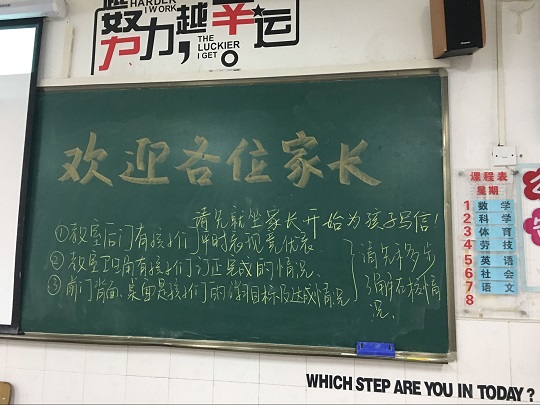 HARDER
I WORK
努力,越幸运。
THE
LUCKIER
I GET
欢迎各位家长
请先就坐家长开始为孩子写信!
①教室后门有孩子们平时表现竞优表
②教室卫口角有孩子们订正完成的情况
③前门背面、桌面是孩子们的学习目标及达成情况
请先
情
况
课程表
星期
1 数学
2 科学
3 体育
4 劳技
5 英语
6 社会
7 语文
8
WHICH STEP ARE YOU IN TODAY?